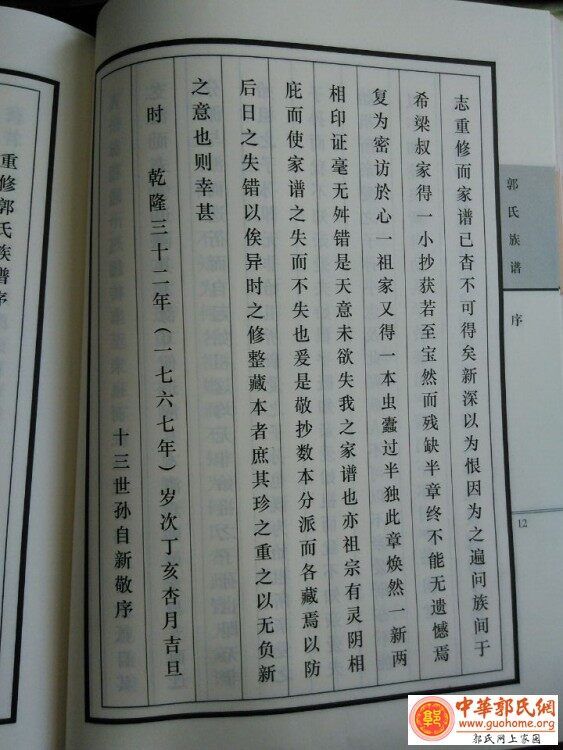 志重修而家谱已杳不可得矣新深以为恨因为之遍问族间于
希梁叔家得一小抄获若至宝然而残缺半章终不能无遗憾焉
复为密访於心一祖家又得一本虫蠹过半独此章焕然一新两
相印证毫无舛错是天意未欲失我之家谱也亦祖宗有灵阴相
庇而使家谱之失而不失也爰是敬抄数本分派而各藏焉以防
后日之失错以俟异时之修整藏本者庶其珍之重之以无负新
之意也则幸甚
时 乾隆三十二年（一七六七年）岁次丁亥杏月吉旦
十三世孙自新敬序
郭氏族谱
序
12
重修郭氏族谱序
中華郭氏網
www.guohome.org
郭氏网上家园